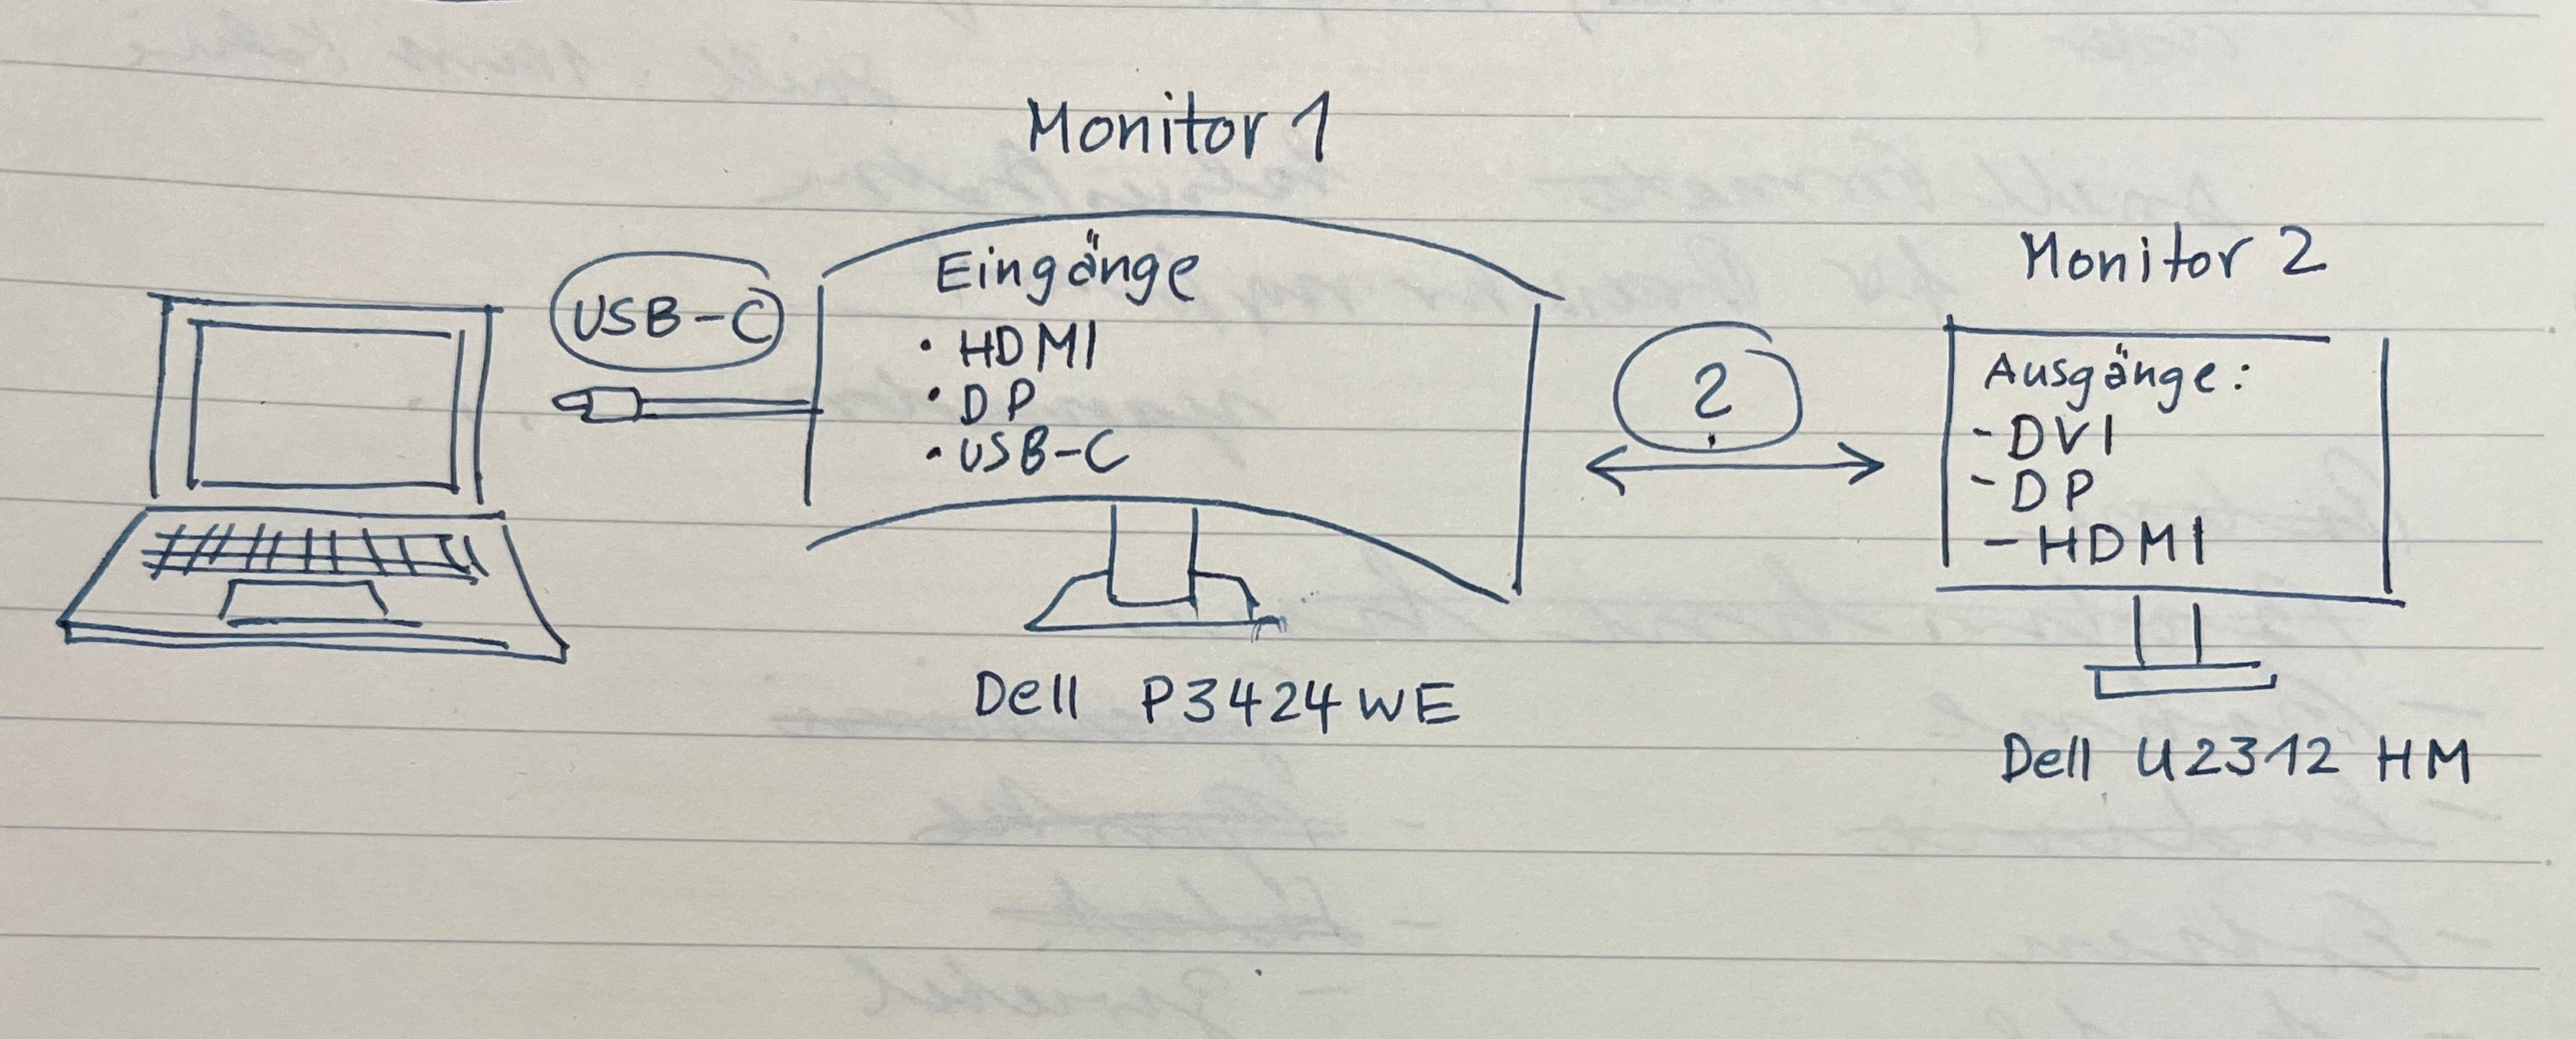 Monitor 1
USB-C
Eingänge
• HDMI
• DP
• USB-C
?
Monitor 2
Ausgänge:
- DVI
- DP
- HDMI
Dell P3424WE
Dell U2312 HM